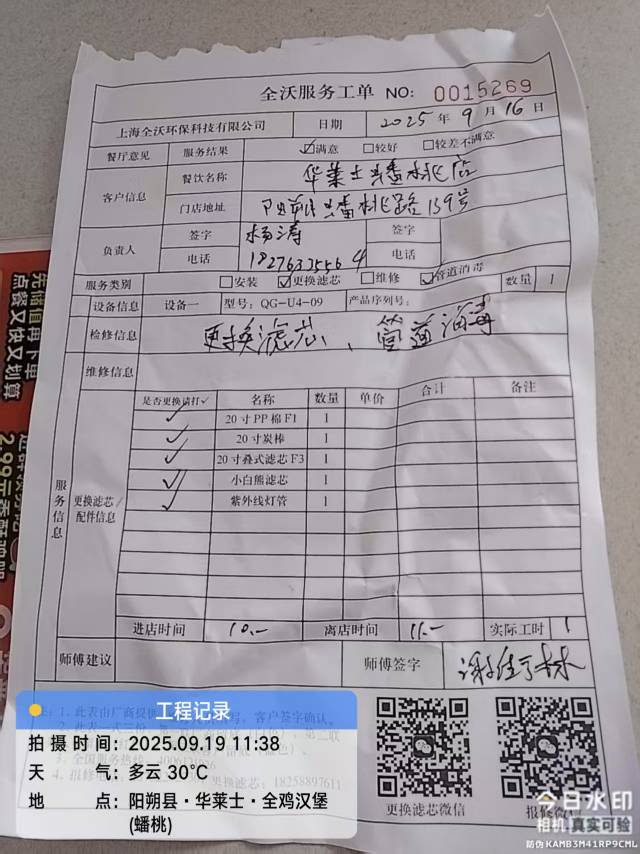 全沃服务工单 NO: 0015269
上海全沃环保科技有限公司 日期 2025年9月16日
餐厅意见 服务结果 ☑满意 □较好 □较差不满意
客户信息 餐饮名称 华莱士蟠桃店
门店地址 阳朔县蟠桃路159号
负责人 签字 杨涛 签字
电话 18276335564 电话
服务类别 □安装 ☑更换滤芯 □维修 ☑管道消毒 数量 1
设备信息 设备一 型号: QG-U4-09 产品序列号:
检修信息 更换滤芯、管道消毒
维修信息
服务信息 更换滤芯/配件信息
是否更换请打✓ 名称 数量 单价 合计 备注
✓ 20寸PP棉F1 1
✓ 20寸炭棒 1
✓ 20寸叠式滤芯F3 1
✓ 小白熊滤芯 1
✓ 紫外线灯管 1
进店时间 10.- 离店时间 11.- 实际工时 1
师傅建议 师傅签字
更换滤芯微信 报修微信
更换滤芯: 18258897611
工程记录
拍摄时间: 2025.09.19 11:38
天气: 多云 30℃
地点: 阳朔县·华莱士·全鸡汉堡(蟠桃)
先储值再下单
点餐又快又划算
今日水印
相机 真实可验
防伪 KAMB3M41RP9CML